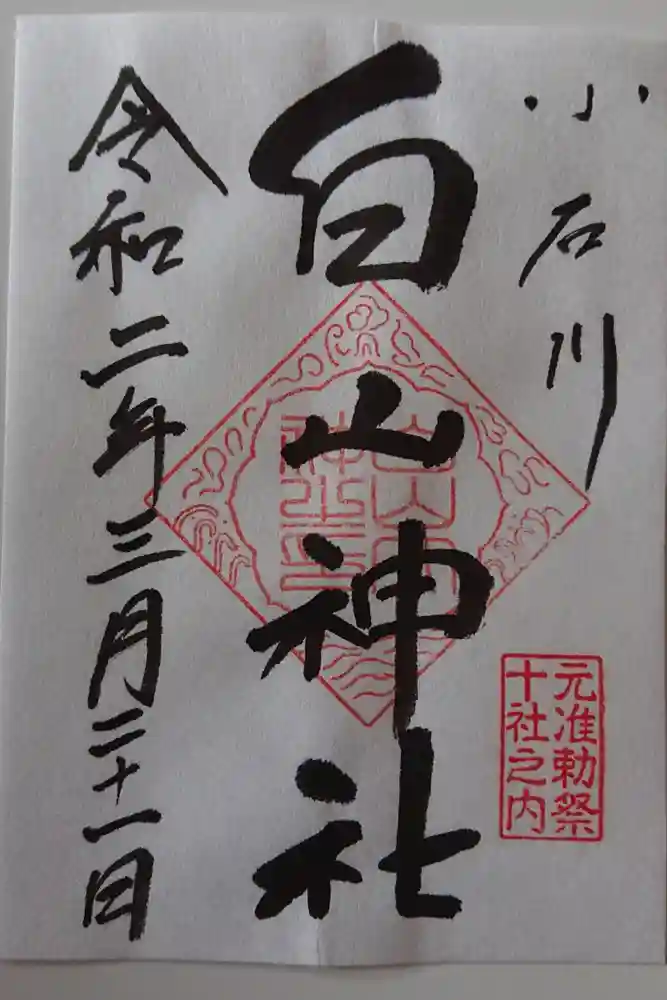 小石川
白山神社
令和二年三月二十一日
元准勅祭
十社之内